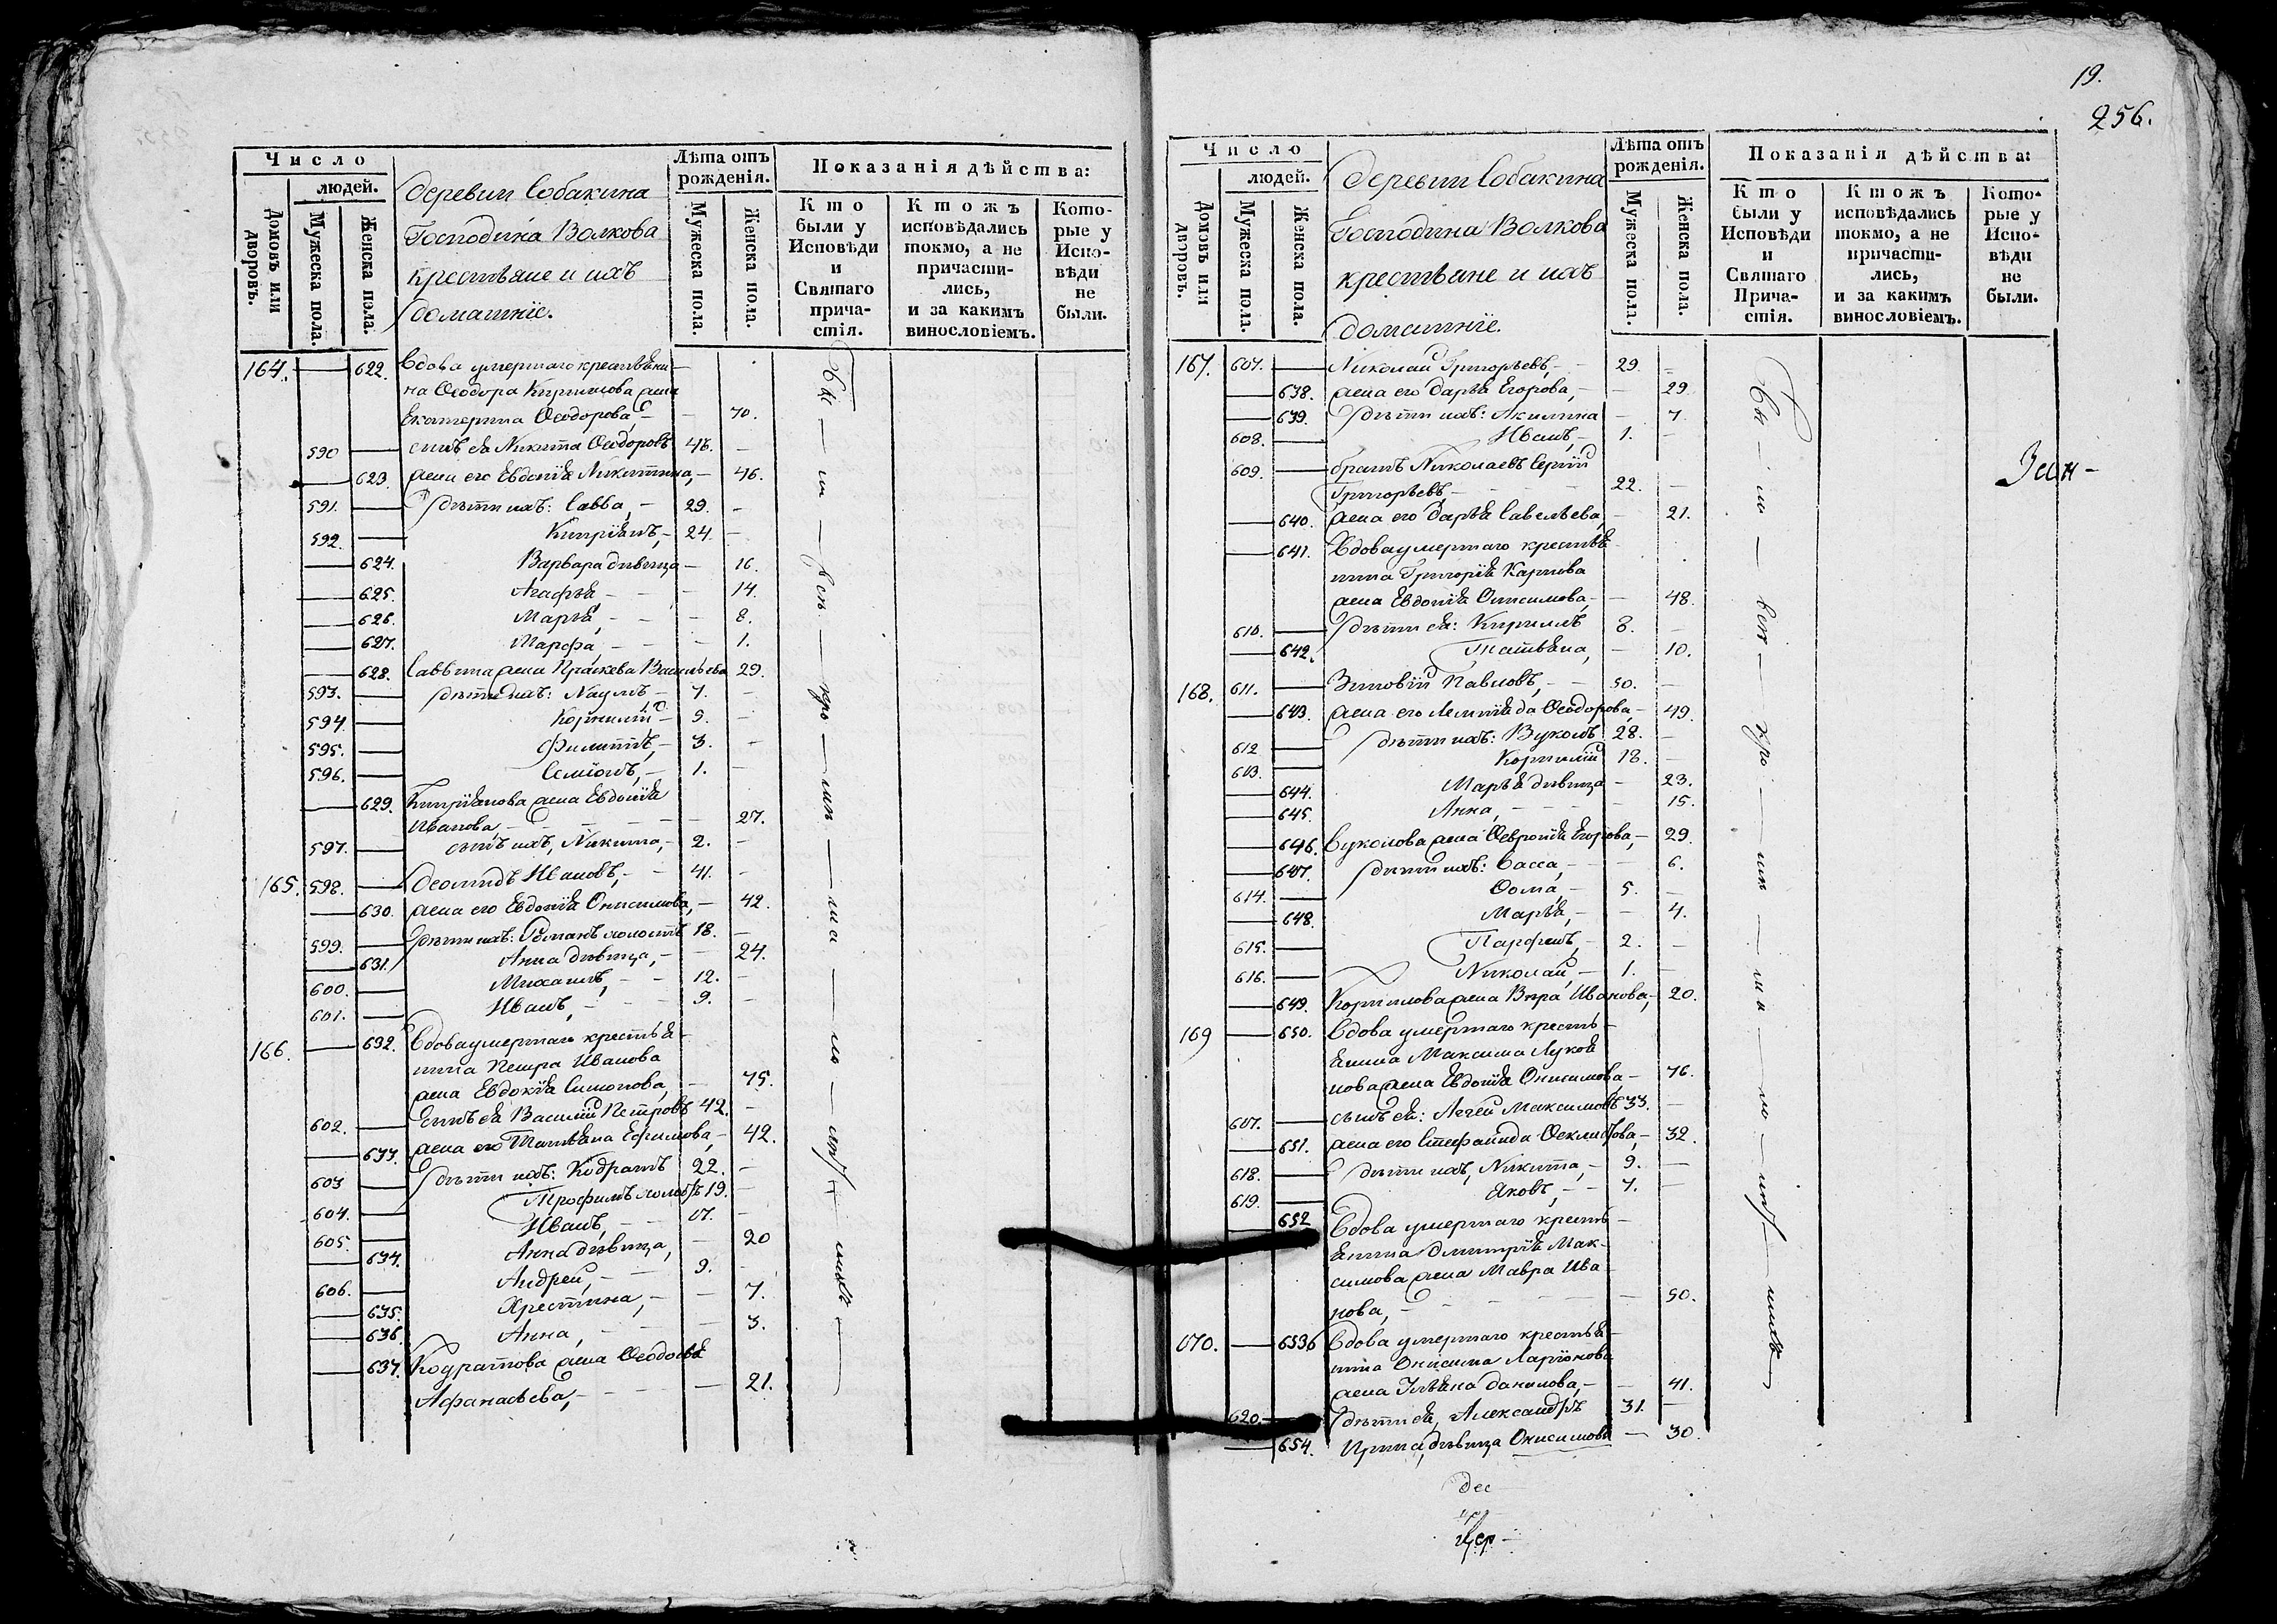 19.
256.
Число
людей.
Домовъ или дворовъ.
Мужеска пола.
Женска пола.
деревни Собакина
Господина Волкова
крестьяне и ихъ
домашніе.
Лѣта отъ рожденія.
Мужеска пола.
Женска пола.
Показанія дѣйства:
Кто были у Исповѣди и Святаго причастія.
Ктожъ исповѣдались токмо, а не причастились, и за какимъ винословіемъ.
Которые у Исповѣди не были.
164. — 622. Вдова умершаго крестьяни-
на Ѳеодора Кирилова жена
Екатерина Ѳеодорова, — 70.
590 — сынъ ея Никита Ѳеодоровъ 46. —
— 623. жена его Евдокія Никитина, — 46.
591. — дѣти ихъ: Савва, — 29. —
592. — Кипріянъ, — 24. —
— 624. Варвара дѣвица — 16.
— 625. Агафья — — 14.
— 626. Марья, — — 8.
— 627. Марфа, — — 1.
— 628. Саввина жена Праскева Васильева 29.
593. — дѣти ихъ: Наумъ — 7. —
594. — Корнилій — 5. —
595. — Филиппъ, — 3. —
596. — Семіонъ, — 1. —
— 629. Кипріянова жена Евдокія
Иванова, — — 27.
597. — сынъ ихъ, Никита, — 2. —
165. 598. — Леонидъ Ивановъ, — 41. —
— 630. жена его Евдокія Онисимова, — 42.
599. — дѣти ихъ: Романъ холостъ 18. —
— 631. Анна дѣвица, — — 24.
600. — Михаилъ, — 12. —
601. — Иванъ, — 9. —
166. — 632. Вдова умершаго крестья-
нина Петра Иванова
жена Евдокія Симонова, — 75.
602. — Сынъ ея Василій Петровъ 42. —
— 633. жена его Татьяна Ефимова, — 42.
603 — дѣти ихъ: Кодратъ 22. —
604. — Трофимъ холостъ 19. —
605. — Иванъ, — 17. —
— 634. Анна дѣвица, — 20
606. — Андрей, — 9. —
— 635. Хрестина, — — 7.
— 636. Анна, — — 3.
— 637. Кодратова жена Ѳеодосья
Афанасьева, — — 21.
Бы — ли — всѣ — про — ме —
Число
людей.
Домовъ или дворовъ.
Мужеска пола.
Женска пола.
деревни Собакина
Господина Волкова
крестьяне и ихъ
домашніе.
Лѣта отъ рожденія.
Мужеска пола.
Женска пола.
Показанія дѣйства:
Кто были у Исповѣди и Святаго Причастія.
Ктожъ исповѣдались токмо, а не причастились, и за какимъ винословіемъ.
Которые у Исповѣди не были.
167. 607. — Николай Григорьевъ, — 29. —
— 638. жена его Дарья Егорова, — 29.
— 639. дѣти ихъ: Акилина — 7.
608. — Иванъ, — 1. —
609. — братъ Николаевъ Сергій
Григорьевъ, — 22. —
— 640. жена его Дарья Савельева, — 21.
— 641. Вдова умершаго крестья-
нина Григорія Карпова
жена Евдокія Онисимова, — 48.
610. — дѣти ея: Кирилъ 8. —
— 642. Татьяна, — 10.
168. 611. — Зиновій Павловъ, — 50. —
— 643. жена его Леонида Ѳеодорова, — 49.
612 — дѣти ихъ: Вуколъ 28. —
613. — Корнилій 18. —
— 644. Марья дѣвица — 23.
— 645. Анна, — — 15.
— 646. Вуколова жена Ѳевронія Егорова, — 29.
— 647. дѣти ихъ: Васса, — 6.
614. — Ѳома, — 5. —
— 648. Марья, — — 4.
615. — Парфенъ, — 2. —
616. — Николай, — 1. —
— 649. Корнилова жена Вѣра Иванова, — 20.
169 — 650. Вдова умершаго кресть-
янина Максима Лукоя
нова жена Евдокія Онисимова, — 76.
617. — сынъ ея: Аггей Максимовъ 33. —
— 651. жена его Стефанида Ѳеклистова, — 32.
618. — дѣти ихъ, Никита, — 9. —
619. — Яковъ, — 7. —
652 Вдова умершаго кресть-
янина Дмитрія Мак-
симова жена Мавра Ива
нова, — — 50.
170. — 6536 Вдова умершаго крестья-
нина Онисима Ларіонова
жена Ульяна Данилова, — 41.
620. — дѣти ея, Александръ 31. —
— 654. Ирина, дѣвица Онисимова — 30.
Бы — ли — всѣ — про —
Зин-